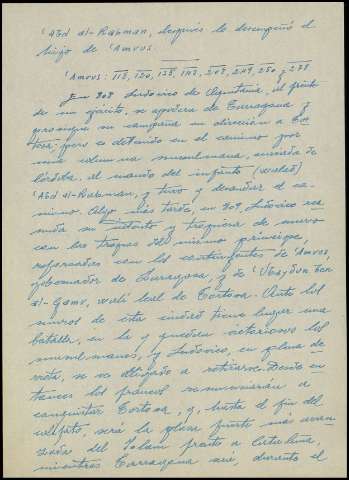 ʿAbd al-Rahman, después lo desempeñó el
hijo de ʿAmrus.
ʿAmrus: 118, 120, 138, 183, 208, 249, 250 y 278
En 808 Ludovico de Aquitania, al frente
de un ejército, se apodera de Tarragona y
prosigue su campaña en dirección a Tor
tosa; pero es detenido en el camino por
una columna musulmana, enviada de
Córdoba, al mando del infante (walad)
ʿAbd al-Rahman, y tuvo y desandar el ca-
mino. Algo más tarde, en 809, Ludovico rea
nuda su intento y tropieza de nuevo
con las tropas del mismo príncipe,
reforzadas con los contingentes de ʿAmrus,
gobernador de Zaragoza, y de ʿUbaydun ben
al-Gamr, walí leal de Tortosa. Ante los
muros de esta ciudad tiene lugar una
batalla, en la q quedan victoriosos los
musulmanes, y Ludovico, en plena de
rrota, se ve obligado a retirarse. Desde en
tonces los francos renunciarán a
conquistar Tortosa, y, hasta el fin del
califato, será la plaza fuerte más avan
zada del Islam frente a Cataluña,
mientras Tarragona será, durante el